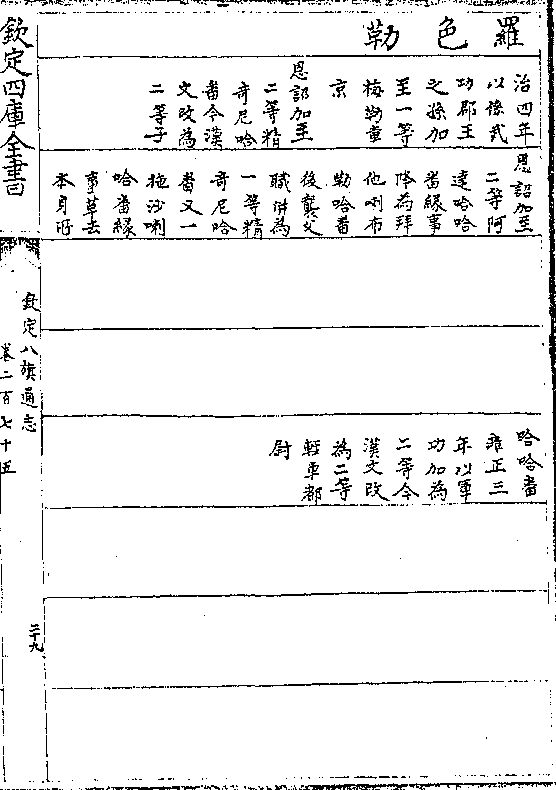 羅色勒
治四年
以豫武
功郡王
之孫加
至一等
梅勒章
京
恩詔加至
二等精
奇尼哈
番今漢
文改為
二等子
恩詔加至
二等阿
達哈哈
番緣事
降為拜
他喇布
勒哈番
後襲父
職併為
一等精
奇尼哈
番又一
拖沙喇
哈番緣
事革去
本身所
哈哈番
雍正三
年以軍
功加為
二等今
漢文改
為二等
輕車都
尉
欽定四庫全書
欽定八旗通志
卷二百七十五
二十九